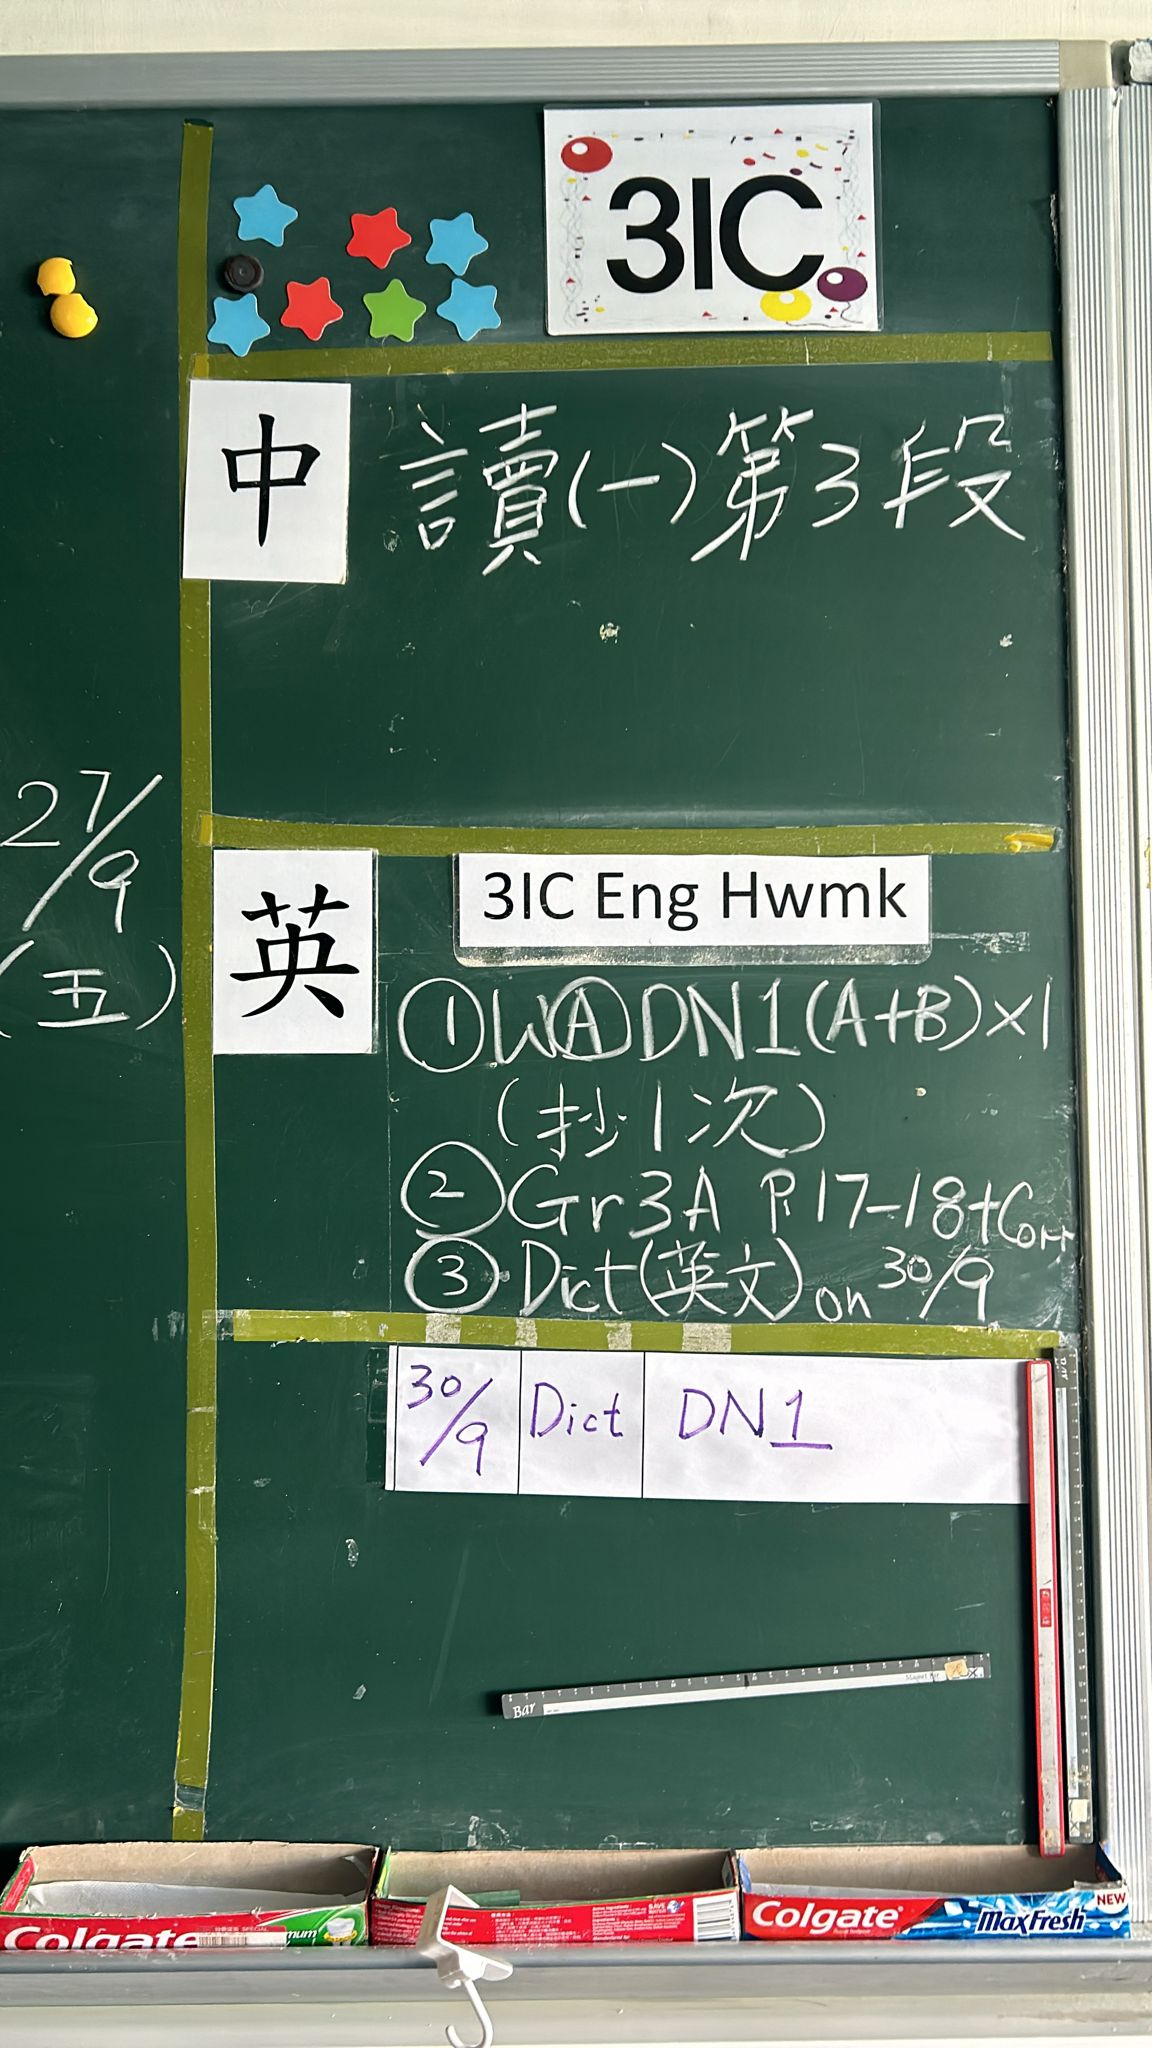 3IC
中
讀(一)第3段
27/9
(五)
英
3IC Eng Hwmk
①WⒶDN1(A+B)×1
(抄1次)
②Gr3A P.17-18+Corr
③Dict(英文)on 30/9
30/9 Dict DN1
Bar
Colgate
Colgate
MaxFresh
NEW